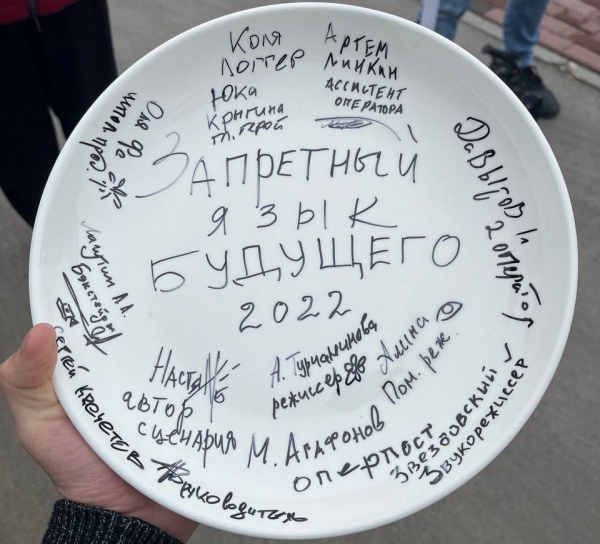 Коля
Логгер
Юка
Кригина
гл. герой
Артем
Линкин
Ассистент
оператора
Оля Фо
исполпрод.
Запретный
язык
будущего
2022
Давыдов
2 оператор
Лагутин А.А.
Бэкстейдж
Сергей Кочетев
Руководитель
Настя
автор
сценария
А. Турчанинова
режиссер
Алина
Пом. реж.
М. Агафонов
оперпост
Звездовский
Звукорежиссер